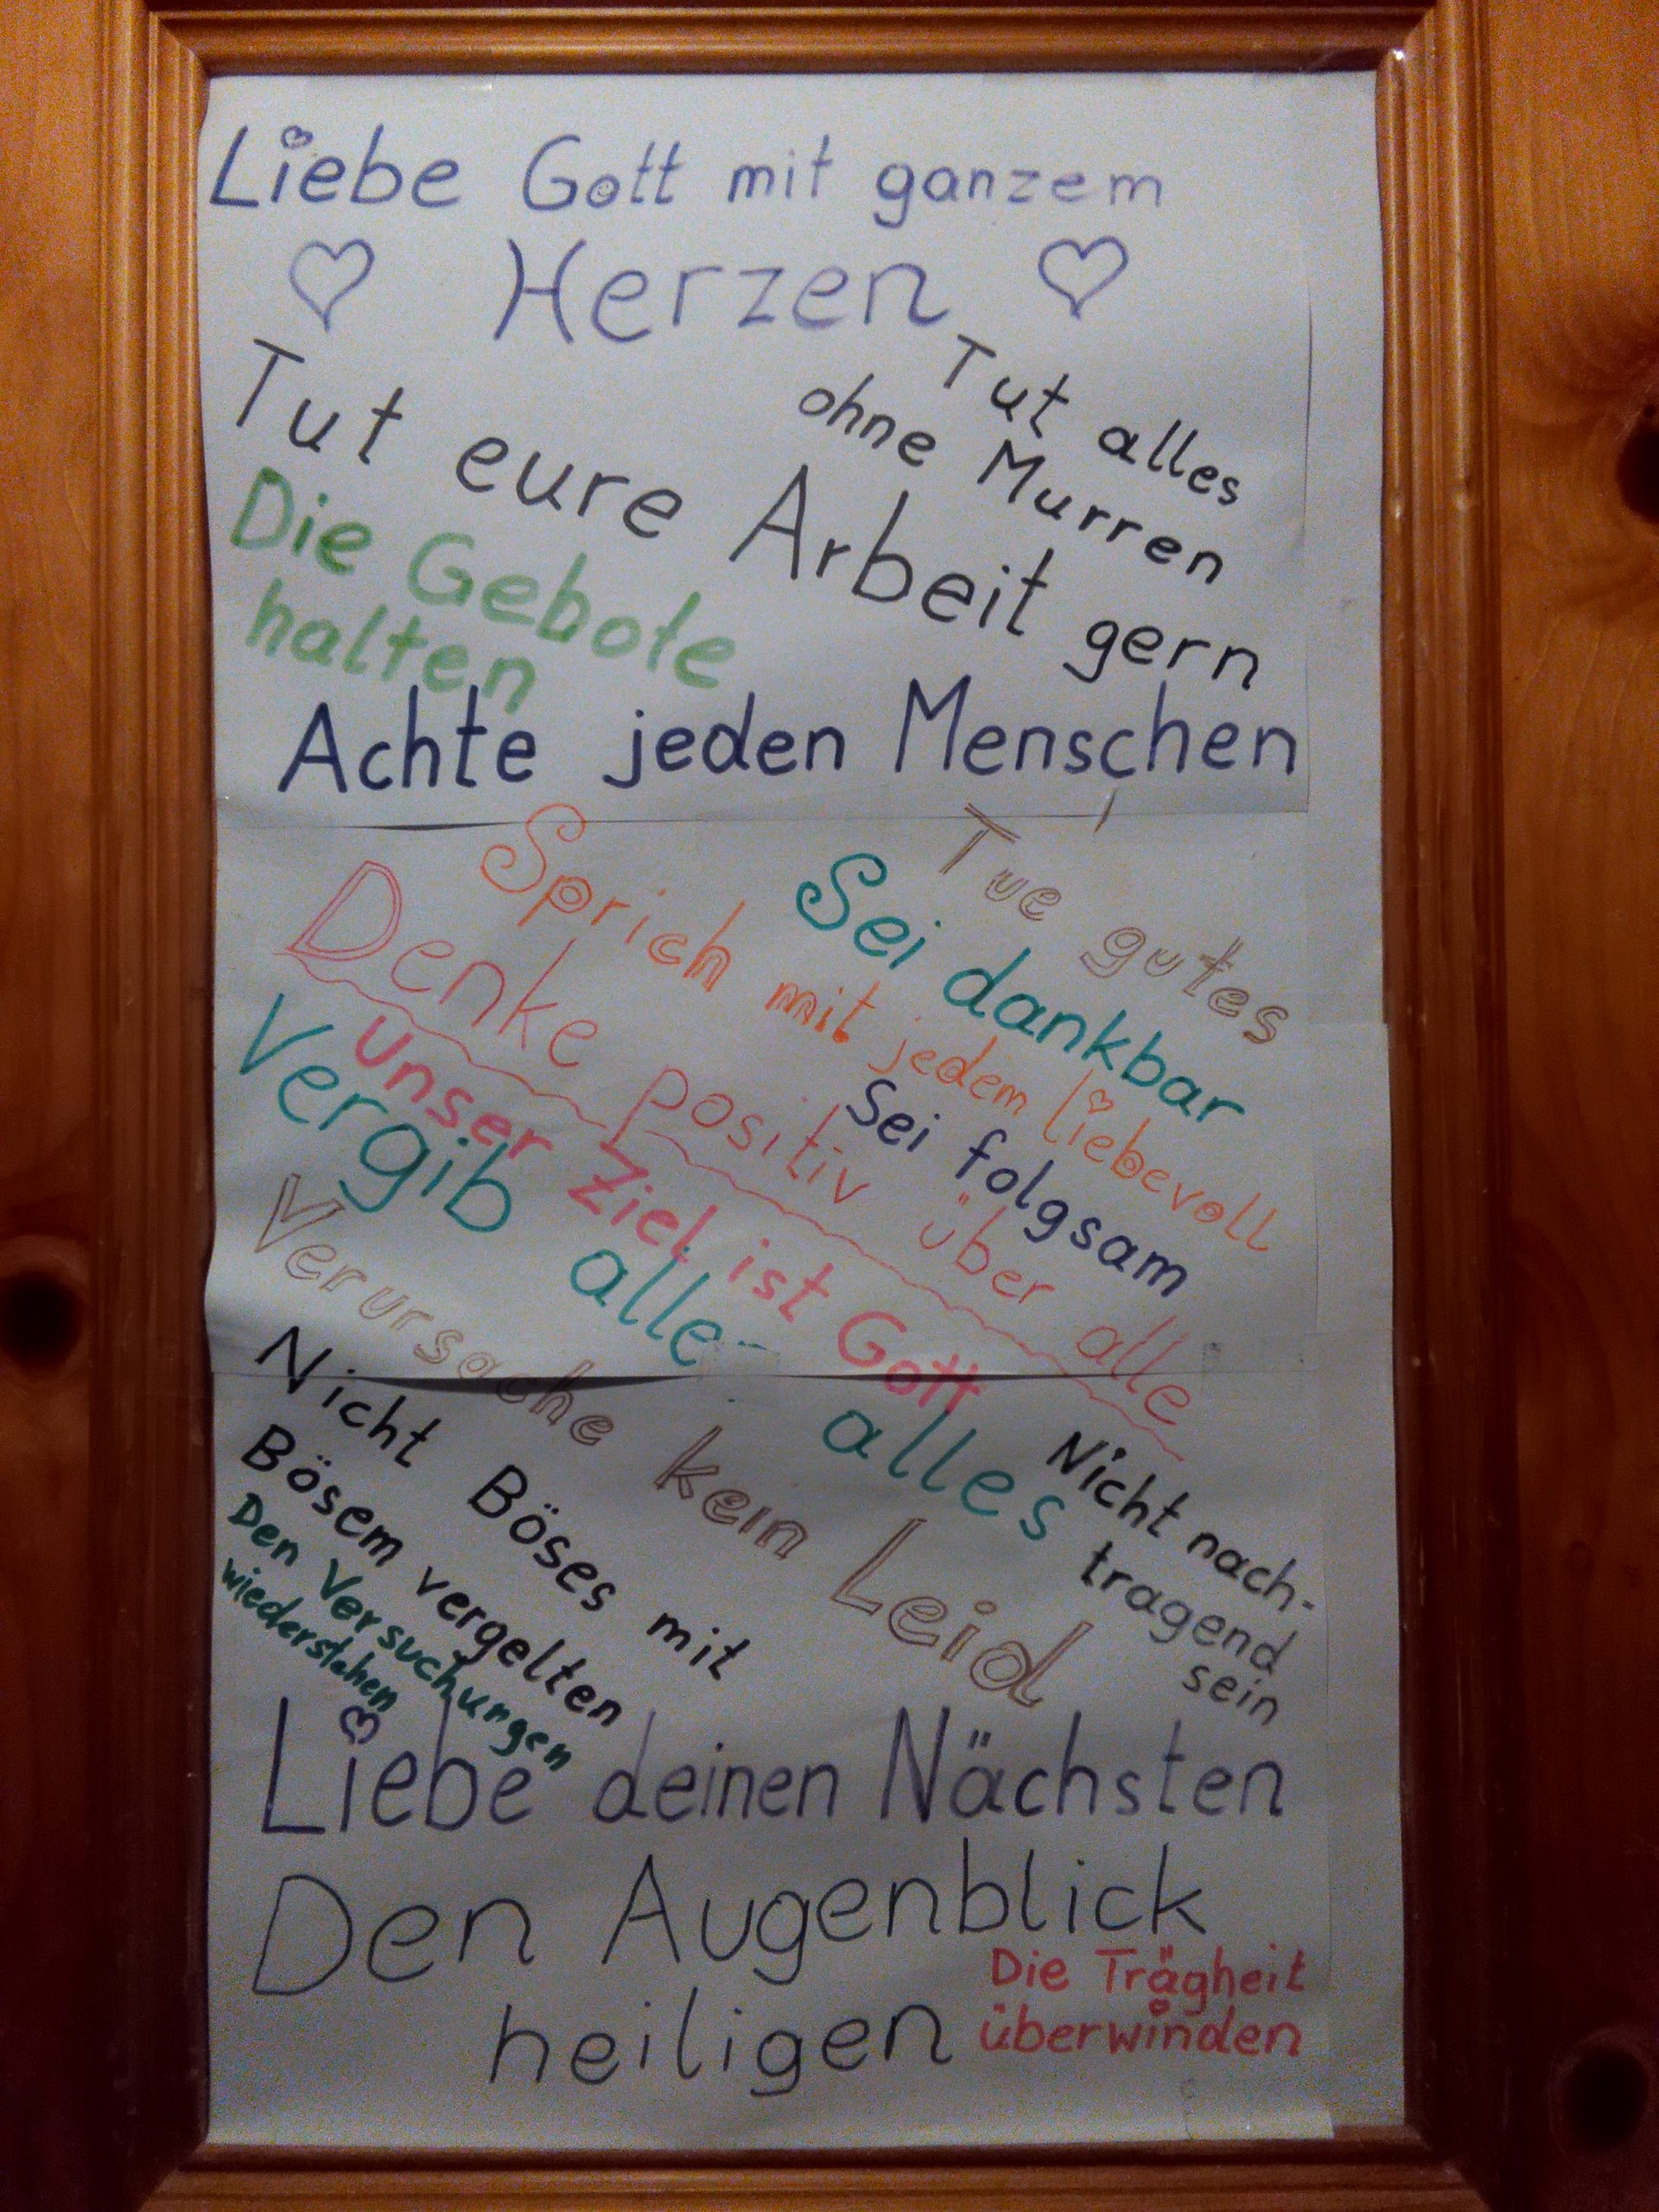 Liebe Gott mit ganzem
Herzen
Tut alles
ohne Murren
Tut eure Arbeit gern
Die Gebote
halten
Achte jeden Menschen
Tue gutes
Sei dankbar
Sprich mit jedem liebevoll
Denke positiv über alle
Sei folgsam
unser Ziel ist Gott
Vergib alle-
alles
Verursache kein Leid
Nicht nach-
tragend
sein
Nicht Böses mit
Bösem vergelten
Den Versuchungen
wiederstehen
Liebe deinen Nächsten
Den Augenblick
heiligen
Die Trägheit
überwinden